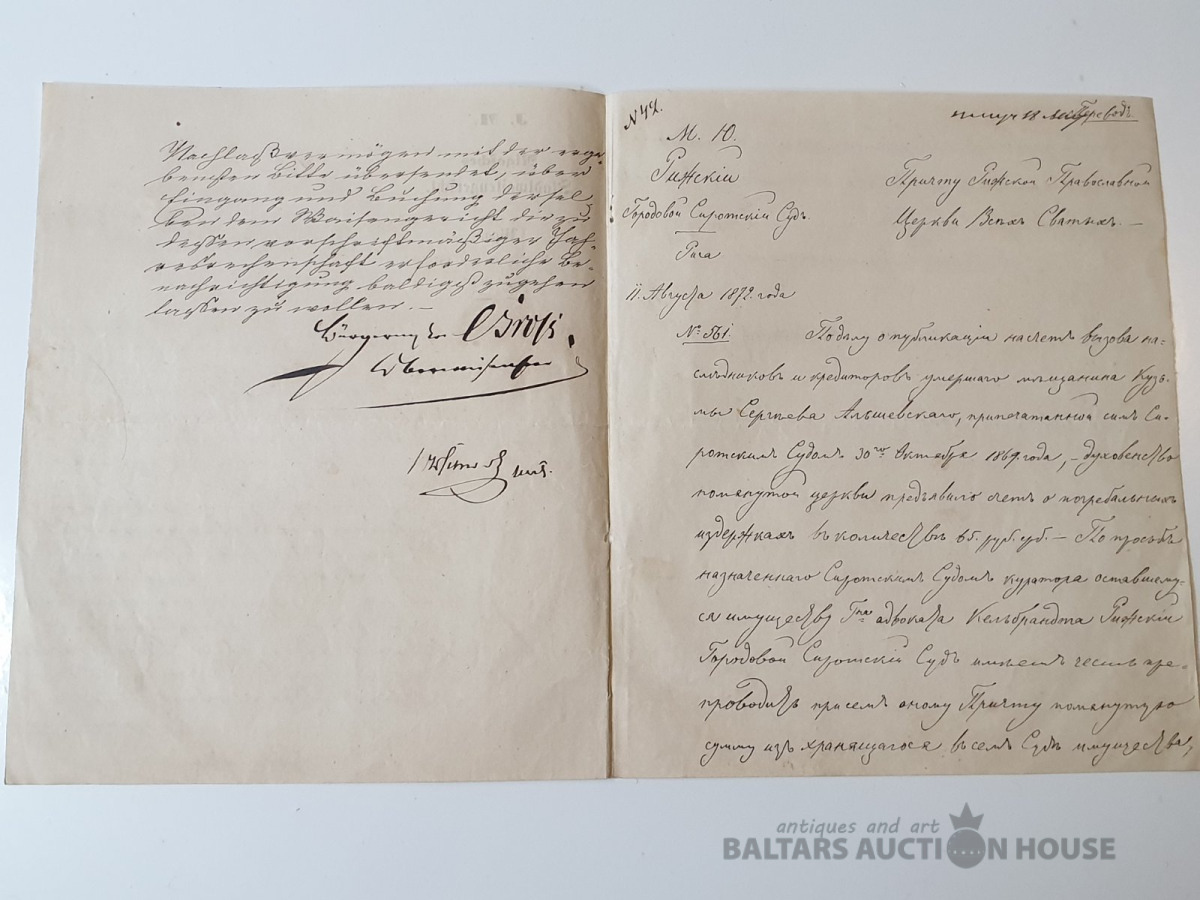 Nachlaßvermögen mit der erge-
bensten Bitte übersendet, über
Eingang und Buchung dersel-
ben dem Waisengericht die zu
dessen vorschriftmäßiger Jah-
resrechenschaft erforderliche Be-
nachrichtigung baldigst zugehen
lassen zu wollen. —
N 42.
Переводъ.
М. Ю.
Рижскій
Городовой Сиротскій Судъ.
Рига
11. Августа 1872. года
№ 561.
Причту Рижской Православной
Церкви Всѣхъ Святыхъ. —
По дѣлу о публикаціи на счетъ вызова на-
слѣдниковъ и кредиторовъ умершаго мѣщанина Кузь-
мы Сергѣева Альшевскаго, припечатанной симъ Си-
ротскимъ Судомъ 30го Октября 1869. года, – духовенство
помянутой церкви предъявило счетъ о погребальныхъ
издержкахъ въ количествѣ 65. руб. сер. – По просьбѣ
назначеннаго Сиротскимъ Судомъ куратора оставшему-
ся имуществу Гна адвоката Кельбрандта Рижскій
Городовой Сиротскій Судъ имѣетъ честь пре-
проводить при семъ оному Причту помянутую
сумму изъ хранящагося въ семъ Судѣ имущества,
antiques and art
BALTARS AUCTION HOUSE